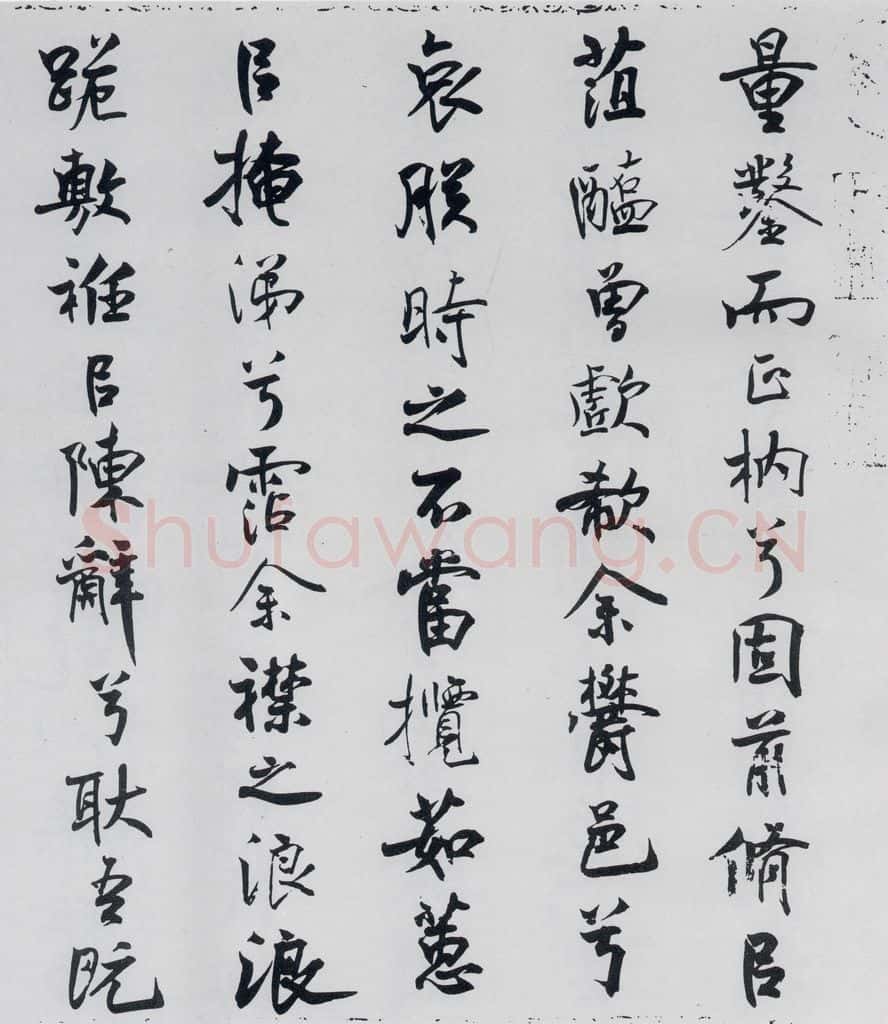 量鑿而正枘兮固前脩㠯
菹醢曾歔欷余鬱邑兮
哀朕時之不當攬茹蕙
㠯掩涕兮霑余襟之浪浪
跪敷衽㠯陳辭兮耿吾既
Shufawang.CN